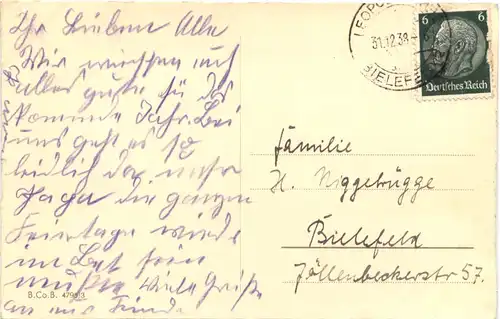 Ihr Lieben Alle
Wir wünschen euch
alles gute für das
kommende Jahr. Bei
uns geht es so
leidlich da mein
Papa die ganzen
Feiertage wieder
im Bet sein
mußte Viele Grüße
an aus
B.Co.B.
LEOPO
31.12.38
BIELEFE
6 6
Deutsches Reich
Familie
H. Niggebrügge
Bielefeld
Jöllenbeckerstr 57.